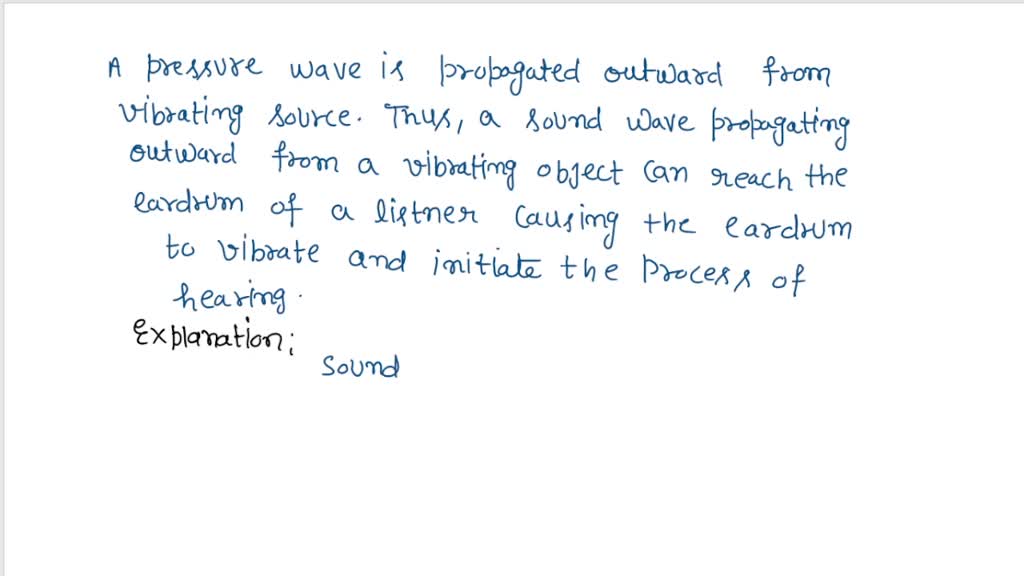 A pressure wave is propagated outward from
vibrating source. Thus, a sound wave propagating
outward from a vibrating object can reach the
eardrum of a listner causing the eardrum
to vibrate and initiate the process of
hearing.
Explanation;
Sound